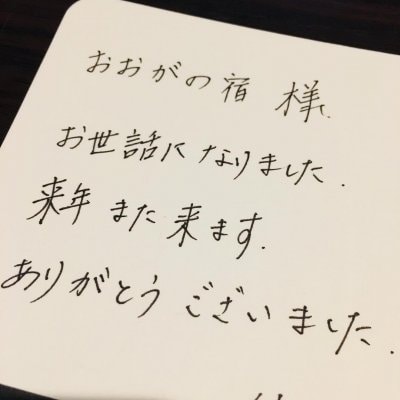 おおがの宿 様
お世話になりました.
来年 また 来ます.
ありがとう ございました.